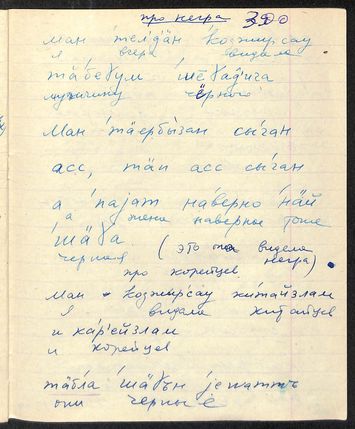 про негра 390
ман 'тел'д'ӓн 'коджирсау
я вчера видела
тӓ'бегум 'шӓɣад'ига
мужчину чёрного
Ман 'тӓербы́зан сы́ған
асс, тӓп асс сы́ған
а 'пајат на́верно 'нӓй
а жена наверны тоже
'шӓɣа. (это она видела
черная негра)
про корейцев
ман коджир'сау китайзлам
я видала китайцев
и каре́йзлам
и корейцев
тӓбла 'шӓɣън 'јематтъ
они черные